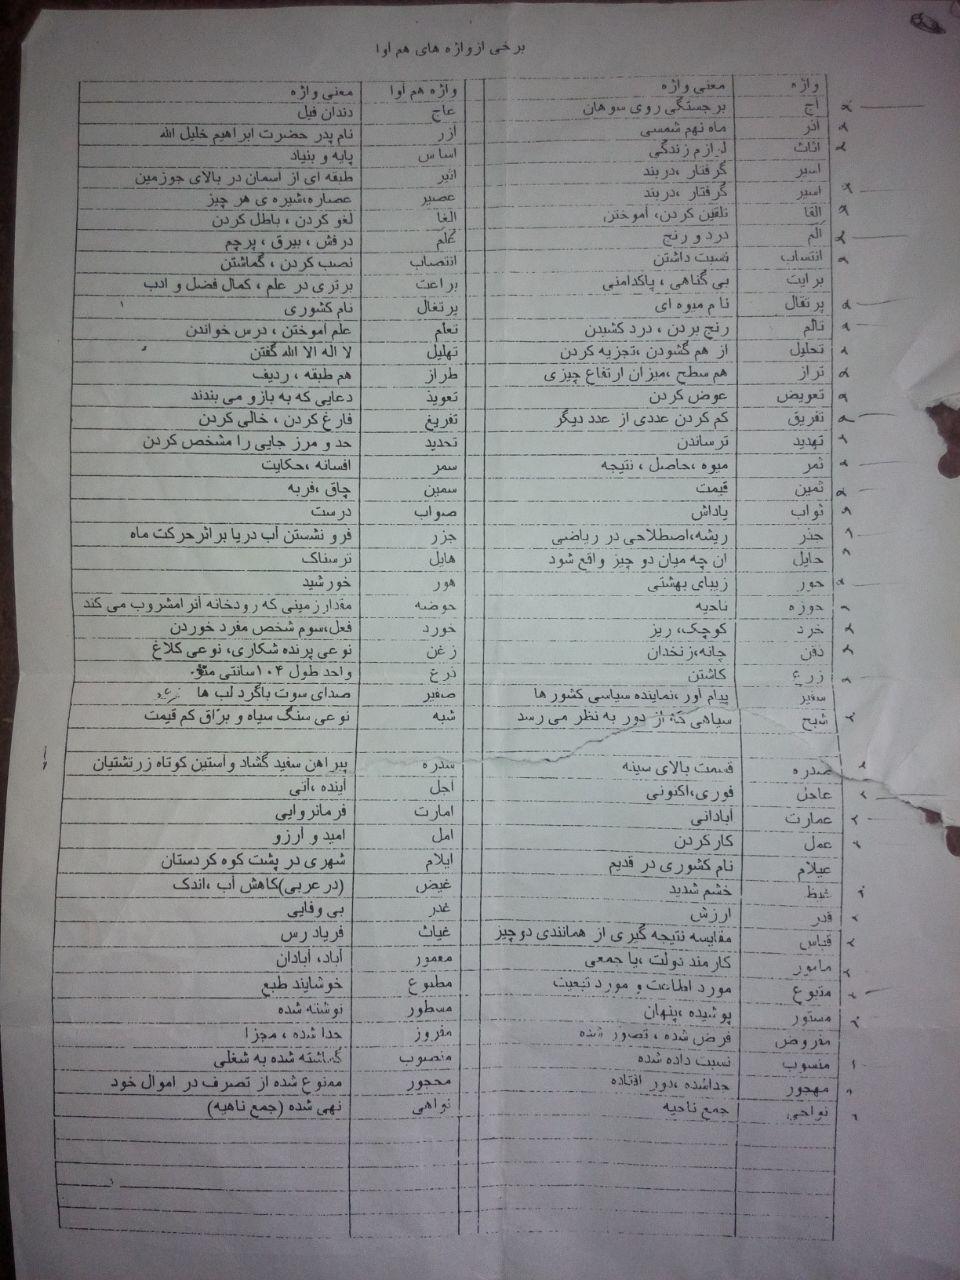 برخی از واژه های هم آوا
واژه معنی واژه واژه هم آوا معنی واژه
آج برجستگی روی سوهان عاج دندان فیل
آذر ماه نهم شمسی آزر نام پدر حضرت ابراهیم خلیل الله
اثاث لوازم زندگی اساس پایه و بنیاد
اسیر گرفتار ،دربند اثیر طبقه ای از آسمان در بالای جوزمین
اسیر گرفتار ،دربند عصیر عصاره،شیره ی هر چیز
القا تلقین کردن، آموختن الغا لغو کردن ، باطل کردن
الم درد و رنج علم درفش ، بیرق ، پرچم
انتساب نسبت داشتن انتصاب نصب کردن ، گماشتن
برایت بی گناهی ، پاکدامنی براعت برتری در علم ، کمال فضل و ادب
پرتقال نام میوه ای پرتغال نام کشوری
تالم رنج بردن ، درد کشیدن تعلم علم آموختن ، درس خواندن
تحلیل از هم گشودن ،تجزیه کردن تهلیل لا اله الا الله گفتن
تراز هم سطح ،میزان ارتفاع چیزی طراز هم طبقه ، ردیف
تعویض عوض کردن تعویذ دعایی که به بازو می بندند
تفریق کم کردن عددی از عدد دیگر تفریغ فارغ کردن ، خالی کردن
تهدید ترساندن تحدید حد و مرز جایی را مشخص کردن
ثمر میوه ،حاصل ، نتیجه سمر افسانه ،حکایت
ثمین قیمت سمین چاق ،فربه
ثواب پاداش صواب درست
جذر ریشه،اصطلاحی در ریاضی جزر فرو نشستن آب دریا بر اثر حرکت ماه
حایل آن چه میان دو چیز واقع شود هایل ترسناک
حور زیبای بهشتی هور خورشید
حوزه ناحیه حوضه مقدار زمینی که رودخانه آنرا مشروب می کند
خرد کوچک، ریز خورد فعل،سوم شخص مفرد خوردن
ذقن چانه،زنخدان زغن نوعی پرنده شکاری، نوعی کلاغ
زرع کاشتن ذرع واحد طول ۱۰۴سانتی متر
سفیر پیام آور ،نماینده سیاسی کشور ها صفیر صدای سوت باگرد لب ها
شبح سیاهی که از دور به نظر می رسد شبه نوعی سنگ سیاه و برّاق کم قیمت
صدره قسمت بالای سینه سدره پیراهن سفید گشاد و آستین کوتاه زرتشتیان
عاجل فوری،اکنونی آجل آینده ،آتی
عمارت آبادانی امارت فرمانروایی
عمل کارکردن امل امید و آرزو
عیلام نام کشوری در قدیم ایلام شهری در پشت کوه کردستان
غیظ خشم شدید غیض (در عربی)کاهش آب ،اندک
قدر ارزش غدر بی وفایی
قیاس مقایسه نتیجه گیری از همانندی دوچیز غیاث فریاد رس
مامور کارمند دولت ،یا جمعی معمور آباد، آبادان
متبوع مورد اطاعت و مورد تبعیت مطبوع خوشایند طبع
مستور پوشیده ،پنهان مسطور نوشته شده
مفروض فرض شده ، تصور شده مفروز جدا شده ، مجزا
منسوب نسبت داده شده منصوب گماشته شده به شغلی
مهجور جداشده ،دور افتاده محجور ممنوع شده از تصرف در اموال خود
نواحی جمع ناحیه نواهی نهی شده (جمع ناهیه)